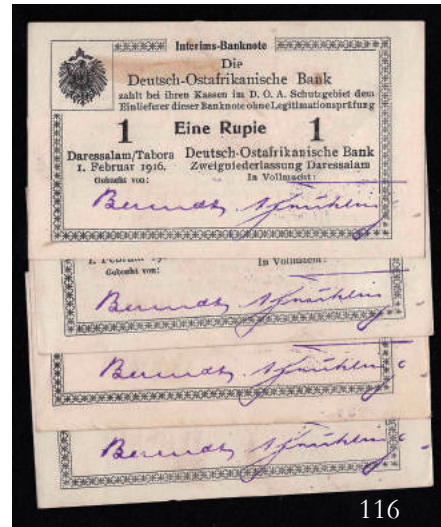 Interims-Banknote
Die
Deutsch-Ostafrikanische Bank
zahlt bei ihren Kassen im D. O. A. Schutzgebiet dem
Einlieferer dieser Banknote ohne Legitimationsprüfung
1 Eine Rupie 1
Daressalam/Tabora Deutsch-Ostafrikanische Bank
1. Februar 1916. Zweigniederlassung Daressalam
Gebucht von: In Vollmacht:
Berendt
1. Februar 19
Gebucht von: In Vollmacht:
Berendt
Berendt
Berendt
116